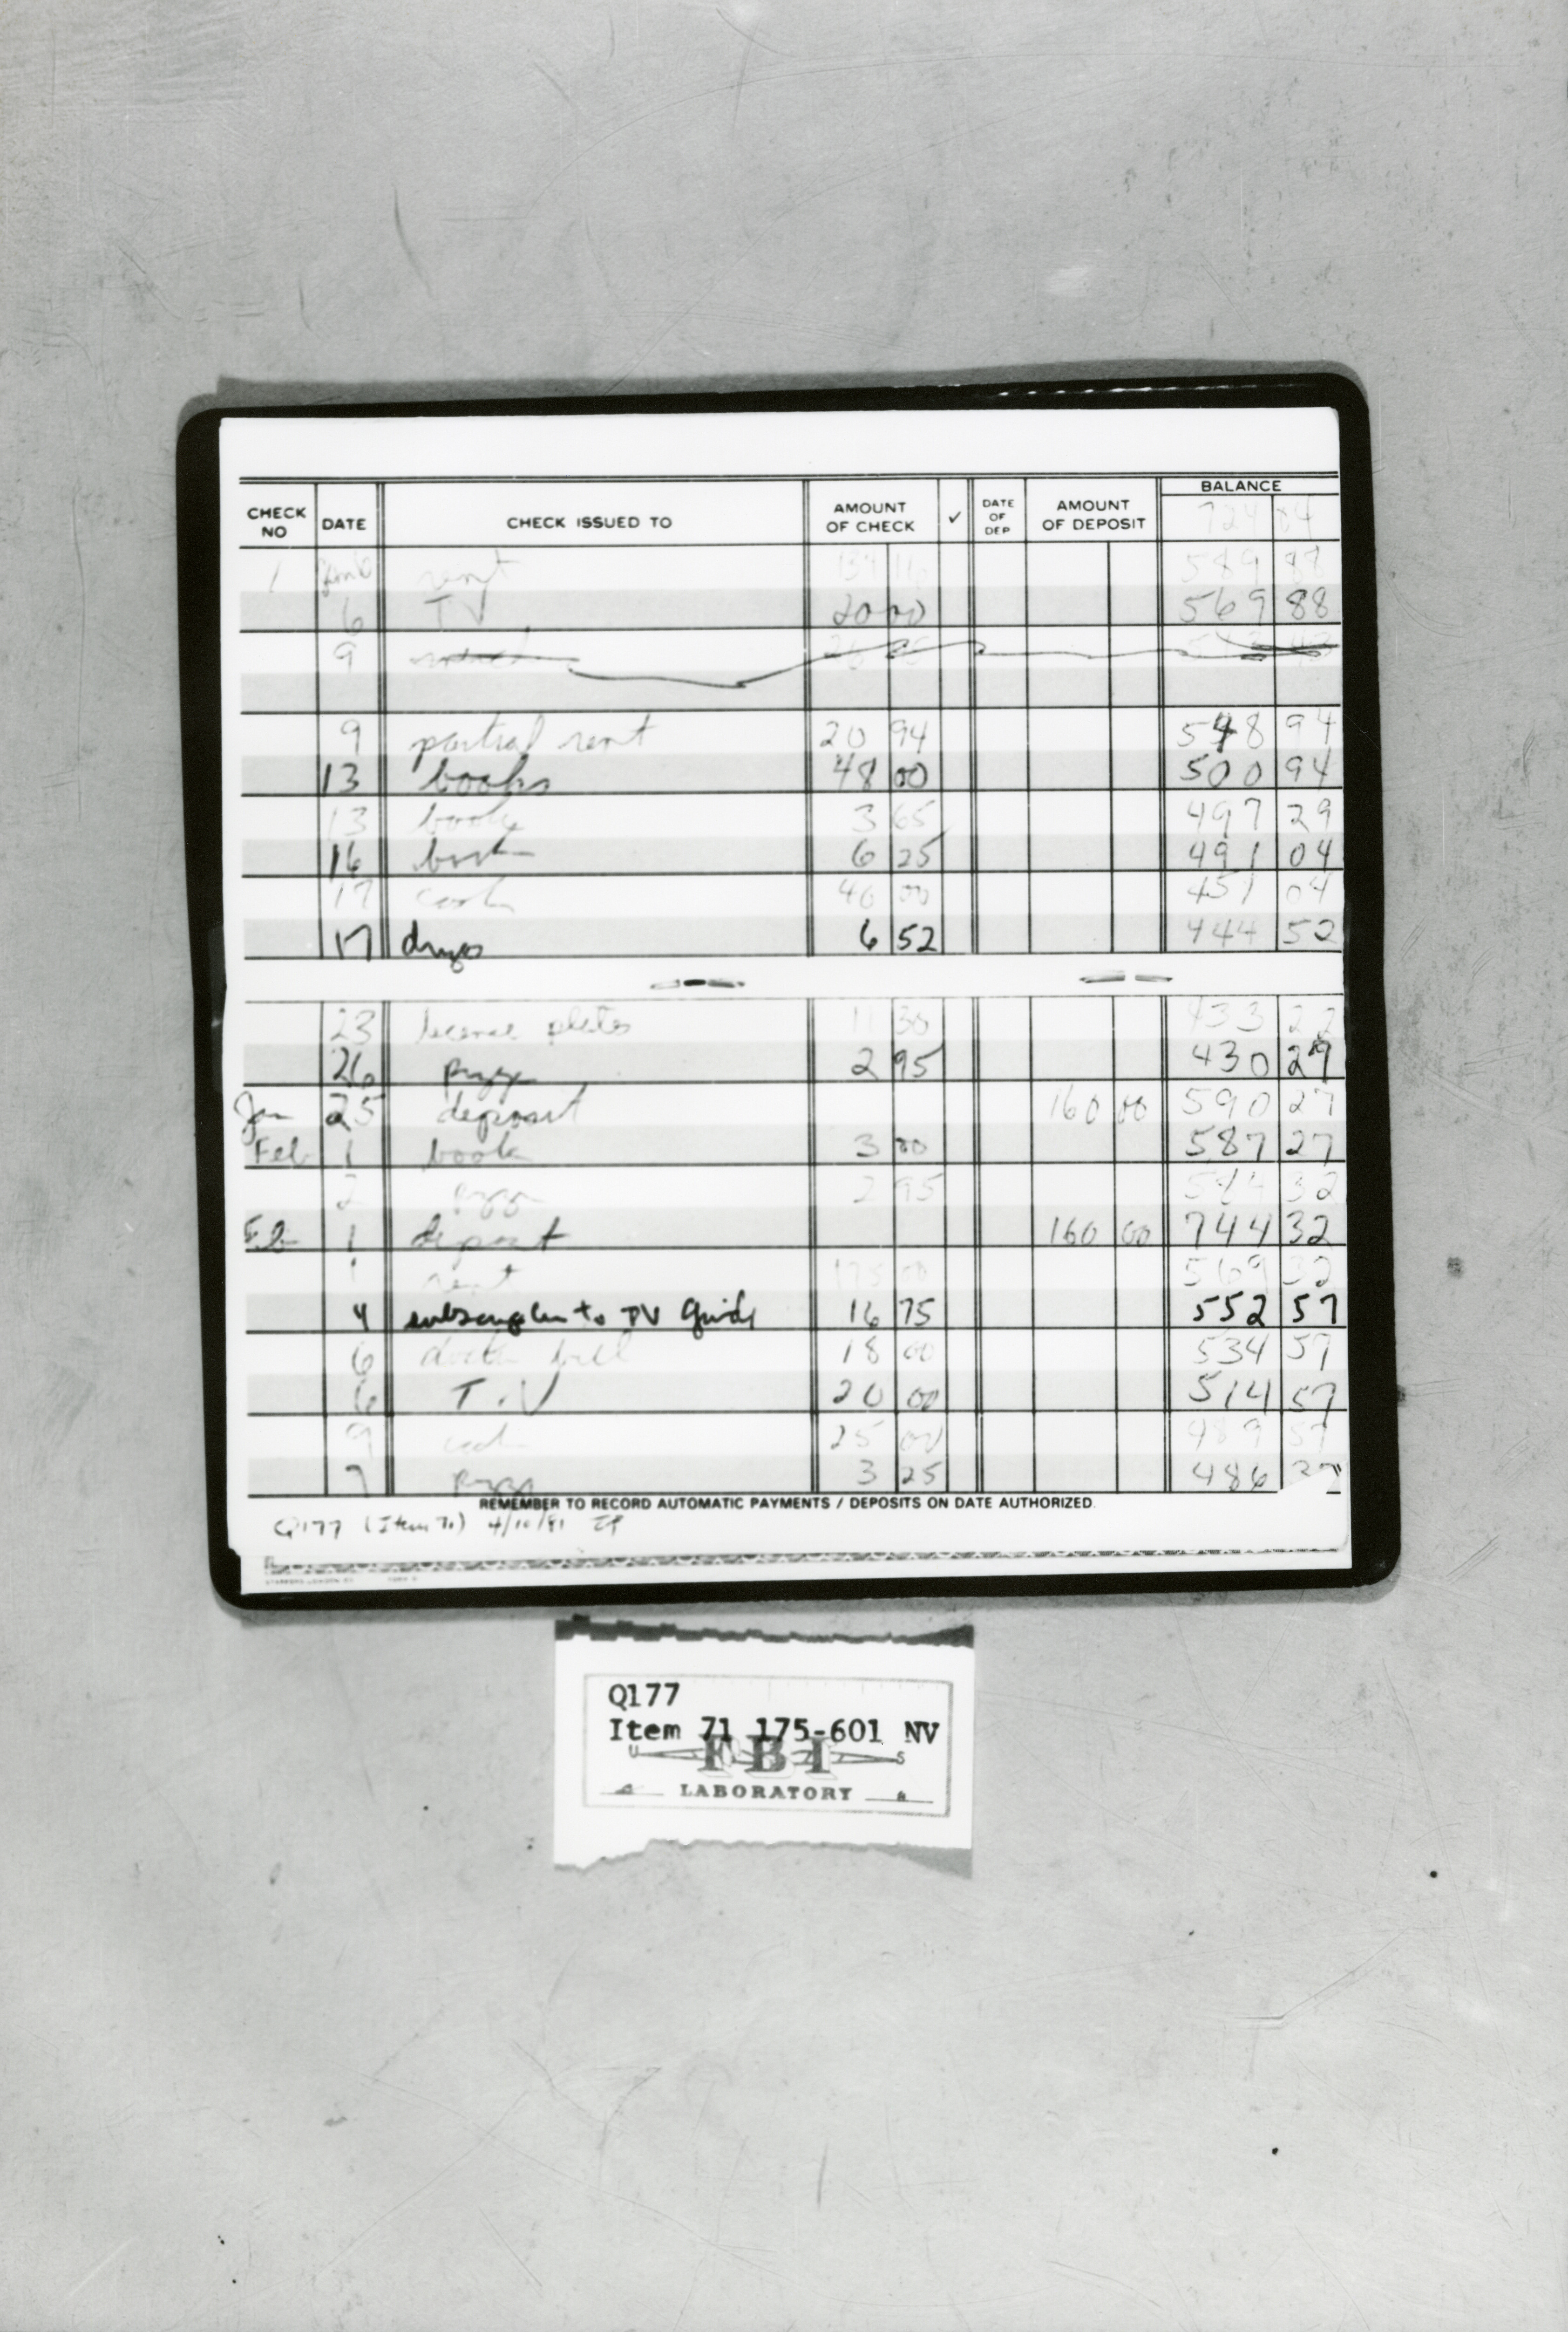 BALANCE
CHECK NO DATE CHECK ISSUED TO AMOUNT OF CHECK ✓ DATE OF DEP AMOUNT OF DEPOSIT 724 04
1 rent 134 16 589 88
6 TV 20 00 569 88
9
9 partial rent 20 94 548 94
13 books 48 00 500 94
13 book 3 65 497 29
16 book 6 25 491 04
17 cash 40 00 451 04
17 drugs 6 52 444 52
23 license plates 11 30 433 22
26 pizza 2 95 430 27
Jan 25 deposit 160 00 590 27
Feb 1 book 3 00 587 27
2 pizza 2 95 584 32
Feb 1 deposit 160 00 744 32
1 rent 175 00 569 32
4 subscription to TV Guide 16 75 552 57
6 bill 18 00 534 57
6 T.V 20 00 514 57
9 cash 25 00 489 57
7 pizza 3 25 486
REMEMBER TO RECORD AUTOMATIC PAYMENTS / DEPOSITS ON DATE AUTHORIZED.
Q177 (Item 71) 4/10/81
Q177
Item 71 175-601 NV
U FBI S
LABORATORY